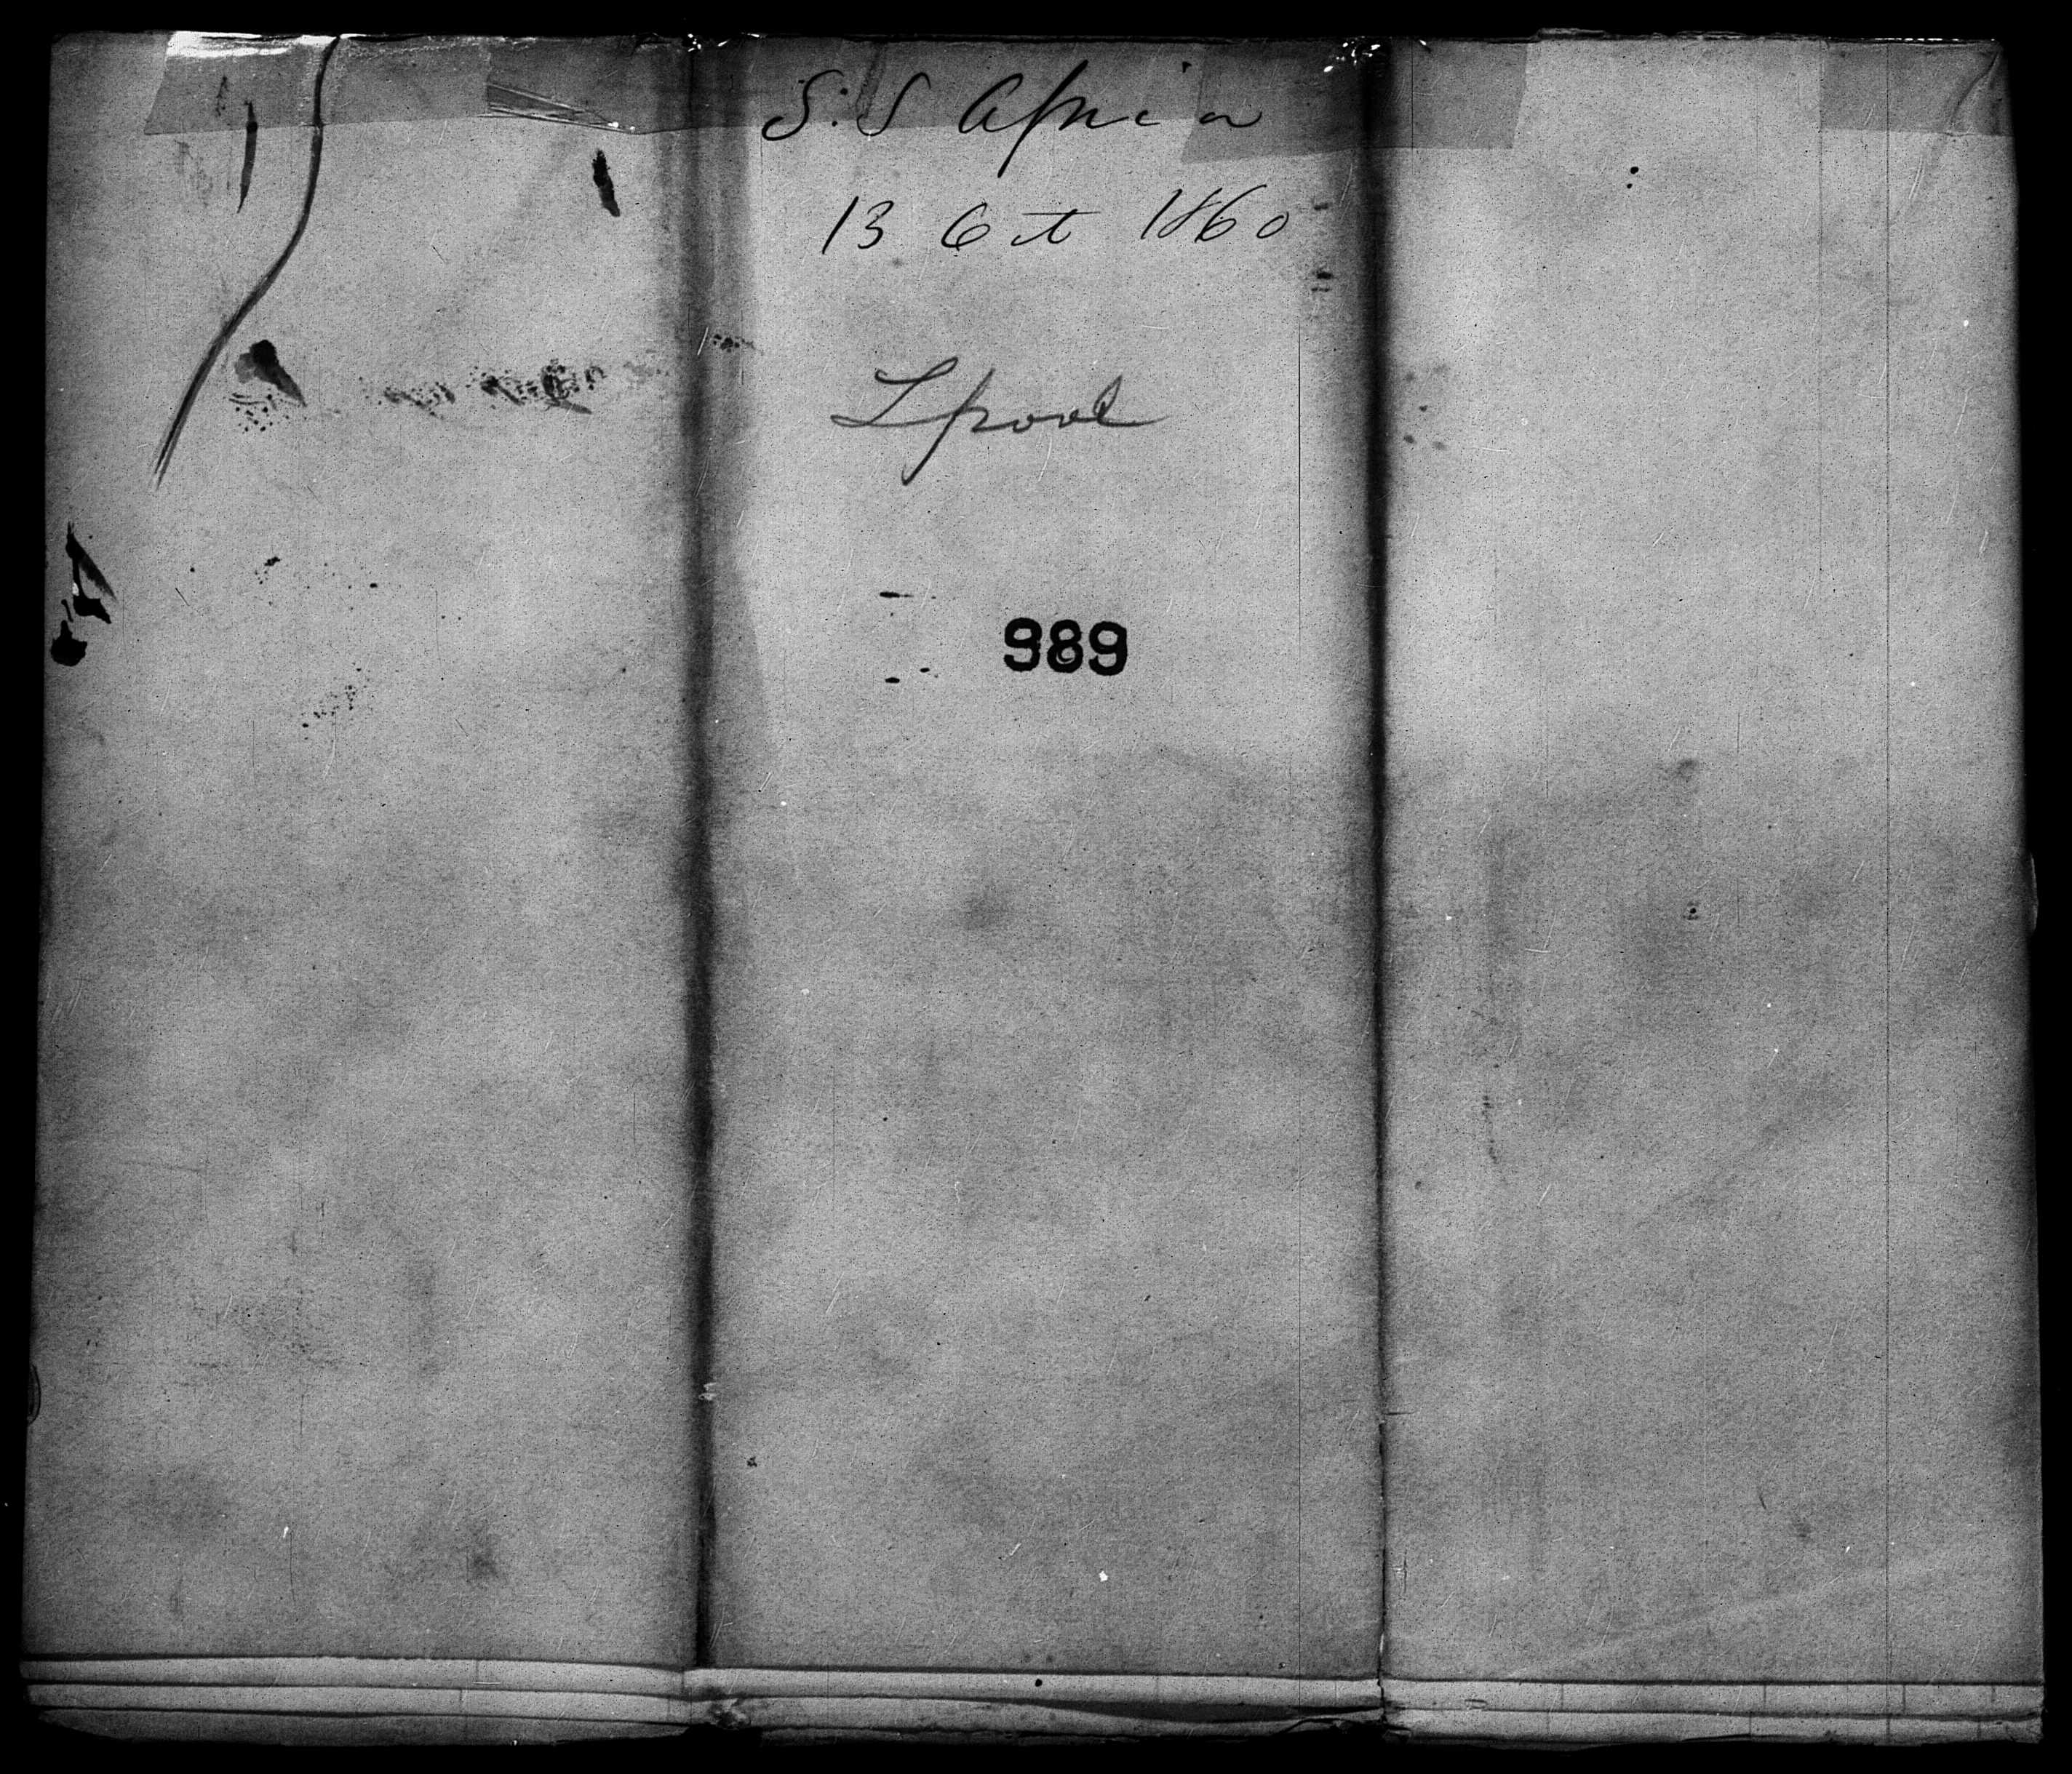 S.S Africa
13 Oct 1860
Lpool
989